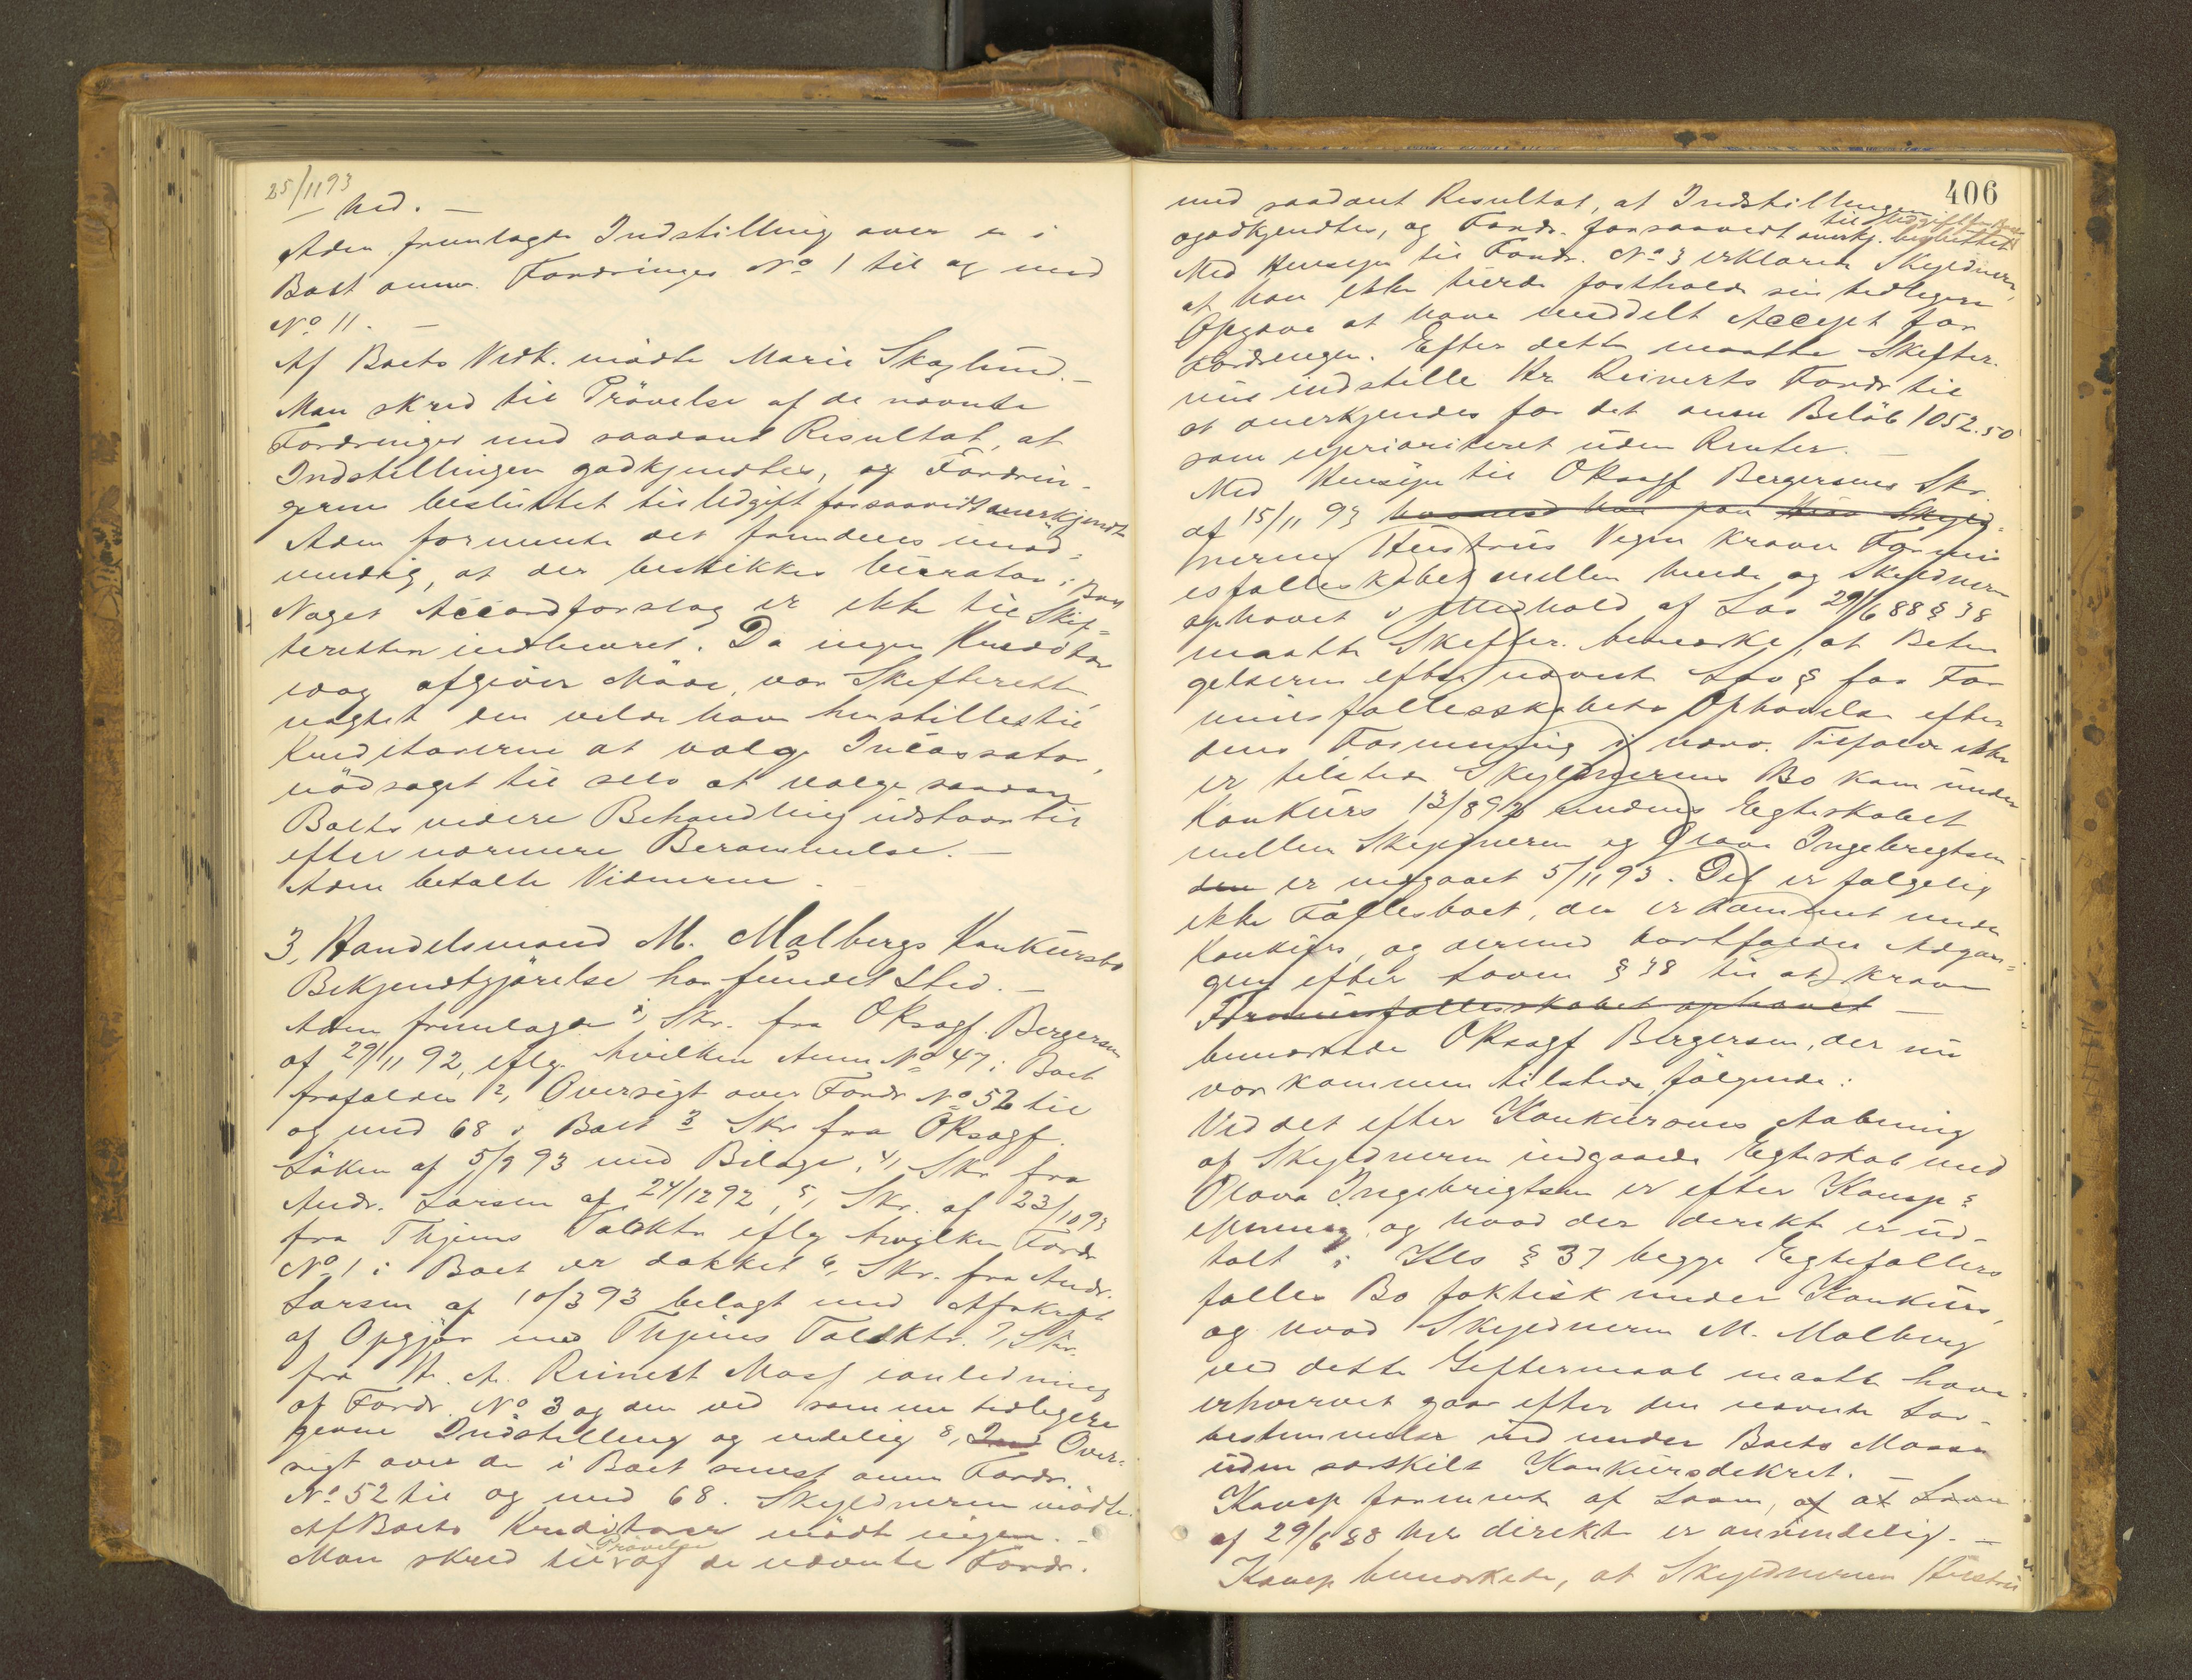 25/11 93
hed. —
Adm fremlagde Indstilling over de i
Boet anm. Fordringer No 1 til og med
No 11. —
Af Boets Vedk. mødte Marie Skoglund. —
Man skred til Prøvelse af de nævnte
Fordringer med saadant Resultat, at
Indstillingen godkjendtes, og Fordrin-
gerne besluttet til Udgift forsaavidt anerkjendt
Adm formente det fremdeles unød-
vendig, at der beskikkes Curator i Boet
Noget Accordforslag er ikke til Skif-
teretten indleveret. Da ingen Kreditor
idag afgiver Møde, var Skifteretten,
uagtet den vilde have henstillet til
Kreditorerne at vælge Incassator,
nødsaget til selv at vælge saadan
Boets videre Behandling udstaar til
efter nærmere Berammelse. —
Adm betalte Vidnerne. —
3, Handelsmand M. Malbergs Konkursbo
Bekjendtgjørelse har fundet Sted. —
Adm fremlagde 1, Skr. fra ORsagf. Bergersen
af 29/11 92, eflg. hvilken Anm No 47 i Boet
frafaldes 2, Oversigt over Fordr No 52 til
og med 68 i Boet 3 Skr fra ORsagf.
Løken af 5/9 93 med Bilage, 4, Skr fra
Andr. Larsen af 24/12 92, 5, Skr. af 23/10 93
fra Thjems Toldktr eflg hvilken Fordr
No 1 i Boet er dækket 6, Skr. fra Andr.
Larsen af 10/3 93 belagt med Afskrift
af Opgjør med Thjems Toldktr. 7, Skr.
fra H. A. Reinert Moss i anledning
af Fordr. No 3 og den ved samme tidligere
givne Indstilling og endelig 8, Ind Over-
sigt over de i Boet senest anm Fordr.
No 52 til og med 68. Skyldneren mødte.
Af Boets Kreditorer mødte ingen. —
Prøvelse
Man skred til af de nævnte Fordr.
406
med saadant Resultat, at Indstillingen
til Udgift i Boet
godkjendtes, og Fordr. forsaavidt anerkj. besluttet
Med Hensyn til Fordr. No 3 erklærede Skyldneren,
at han ikke turde fastholde sin tidligere
Opgave at have meddelt Accept for
Fordringen. Efter dette maatte Skifter.
nu indstille Hr Reinerts Fordr til
at anerkjendes for det anm Beløb 1052.50
som uprioriteret uden Renter. —
Med Hensyn til ORsagf Bergersens Skr.
af 15/11 93 hvorved han paa Skyld-
nerens Hustrus Vegne kræver Formu-
esfællesskabet mellem hende og Skyldneren
ophævet i Medhold af Lov 29/6 88 § 38
maatte Skifter. bemærke, at Betin
gelserne efter nævnte Lov § for For
muesfællesskabets Ophævelse efter
dens Formening i nærv. Tilfælde ikke
er tilstede Skyldnerens Bo kom under
Konkurs 13/8 92 medens Egteskabet
mellem Skyldneren og Olava Ingebregtsen
den er indgaaet 5/11 93. Det er følgelig
ikke Fællesboet, der er kommet under
Konkurs, og dermed bortfalder Adgan-
gen efter Loven § 38 til at kræve
Formuesfællesskabet ophævet —
bemærkede ORsagf Bergersen, der nu
var kommen tilstede, følgende:
Ved det efter Konkursens Aabning
af Skyldneren indgaaede Egteskab med
Olava Ingebrigtsen er efter Komp.s
Mening, og hvad der direkte er ud-
talt i Kls § 37 begge Egtefællers
fælles Bo faktisk under Konkurs,
og hvad Skyldneren M. Malberg
ved dette Giftermaal maatte have
erhvervet gaar efter den nævnte Lov-
bestemmelse ind under Boets Masse
uden særskilt Konkursdekret. —
Komp formente at Loven, af at Loven
af 29/6 88 her direkte er anvendelig. —
Komp bemærkede, at Skyldnerens Hustru